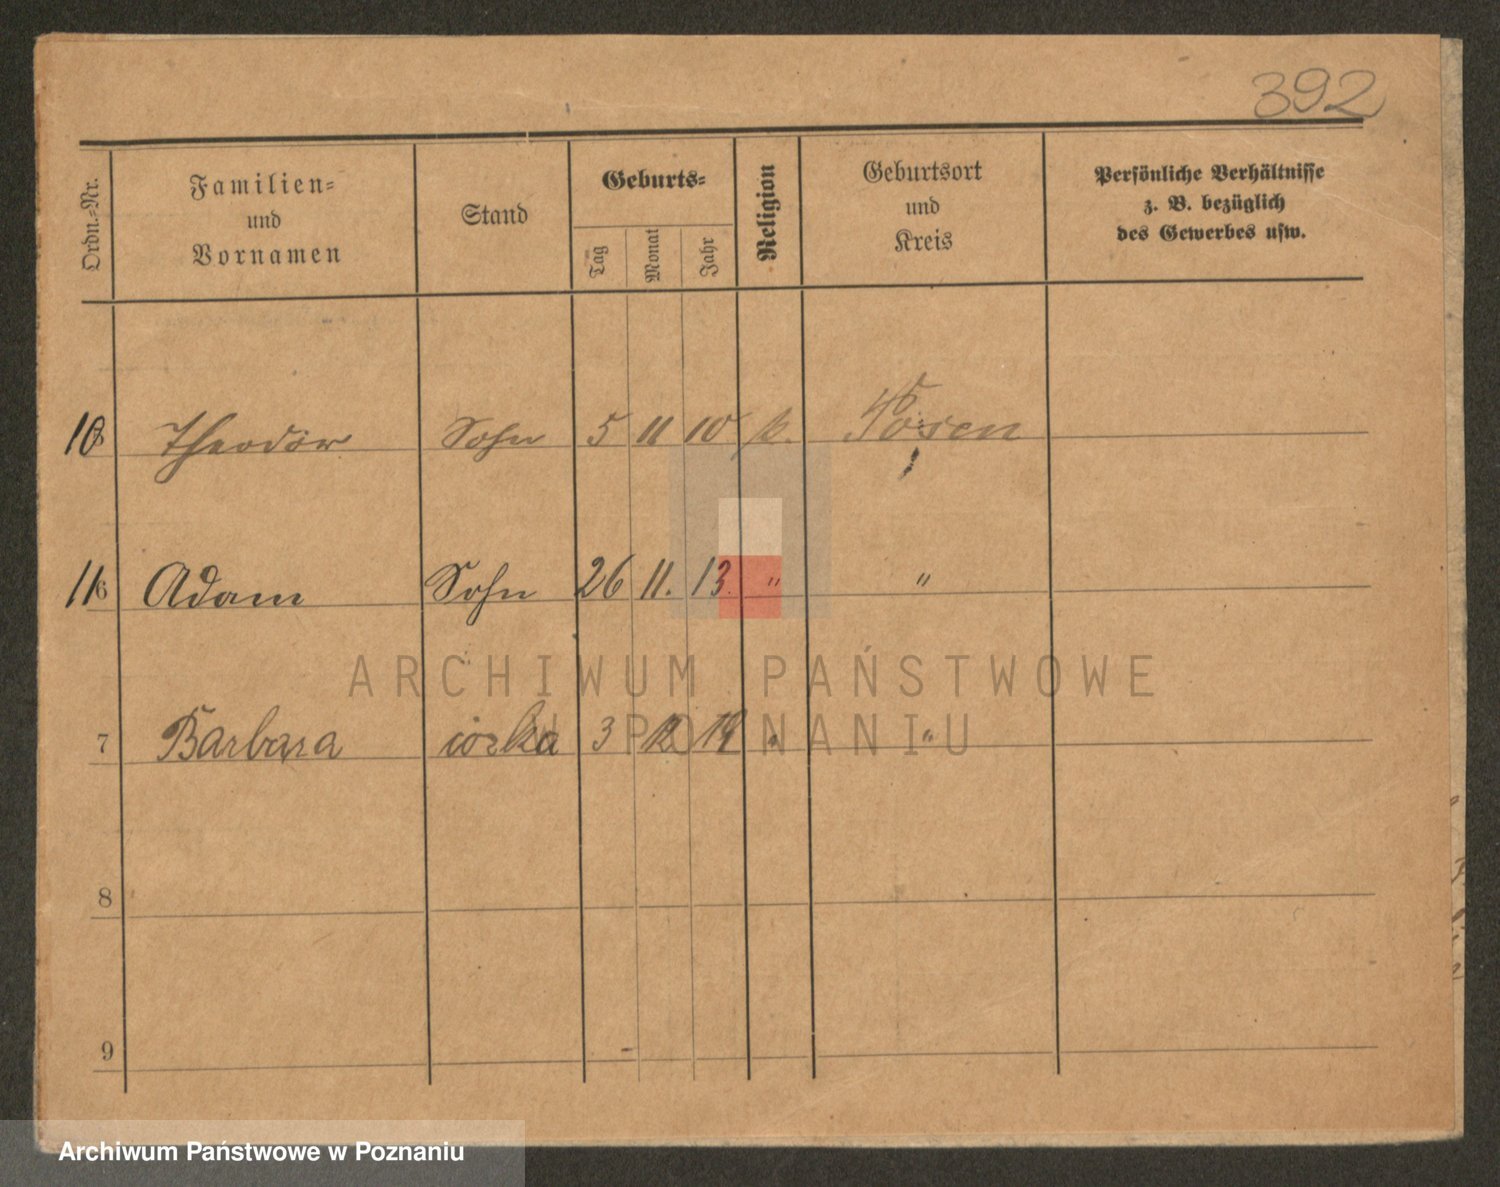 392
Ordn.-Nr.
Familien-
und
Vornamen
Stand
Geburts-
Tag
Monat
Jahr
Religion
Geburtsort
und
Kreis
Persönliche Verhältnisse
z. B. bezüglich
des Gewerbes usw.
10 Theodor Sohn 5 11 10 k. Posen
11 6 Adam Sohn 26 11. 13. " "
7 Barbara córka 3 12 19 " "
8
9
ARCHIWUM PAŃSTWOWE
W POZNANIU
Archiwum Państwowe w Poznaniu